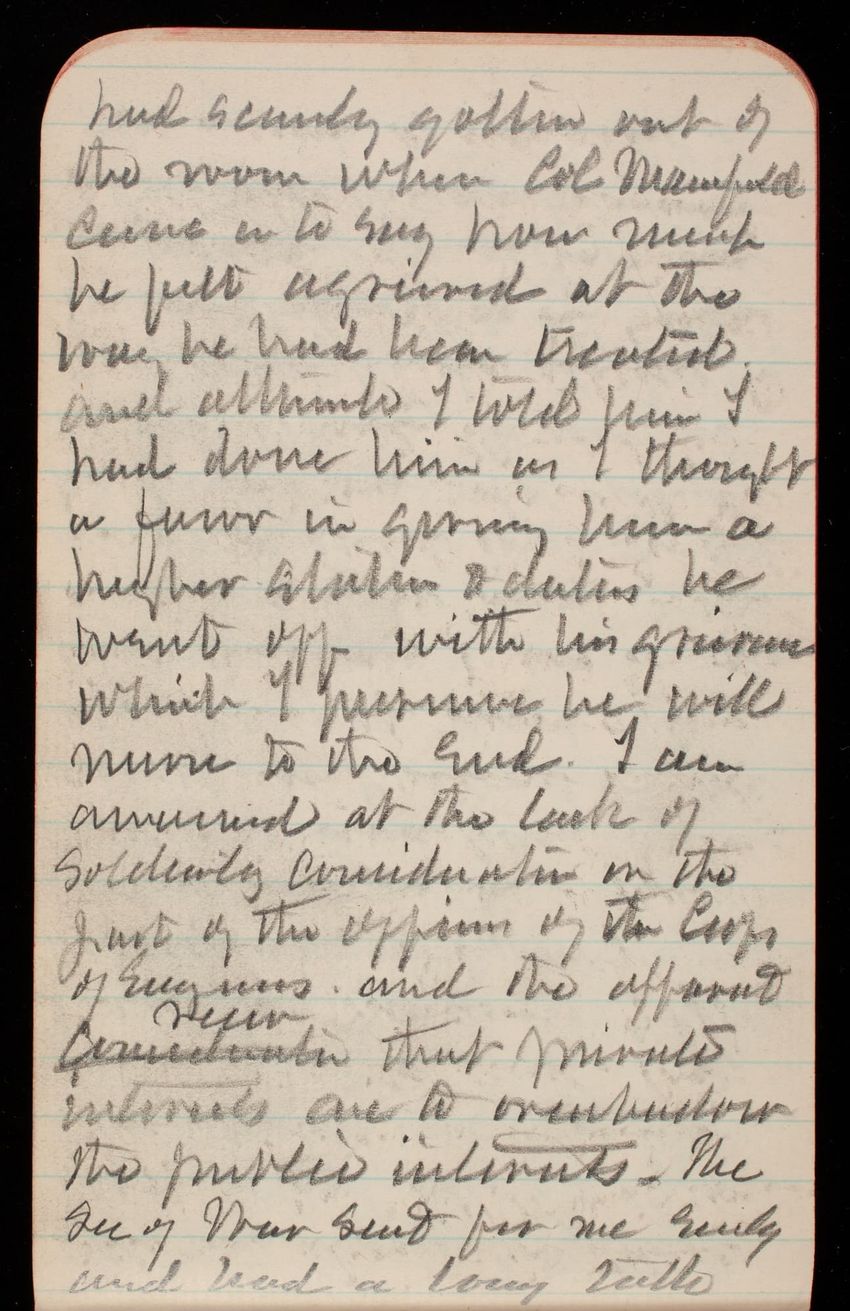 had scarcely gotten out of
the room when Col Mansfield
came in to say how much
he felt agrieved at the
way he had been treated.
and although I told him I
had done him as I thought
a favor in giving him a
higher station & duties he
went off with his grievance
which I presume he will
nurse to the end. I am
amazed at the lack of
Soldierly consideration on the
part of the officers of the Corps
of Engineers. and the apparent
view
that private
interests are to overshadow
the public interests - The
Sec of War sent for me early
and had a long talk